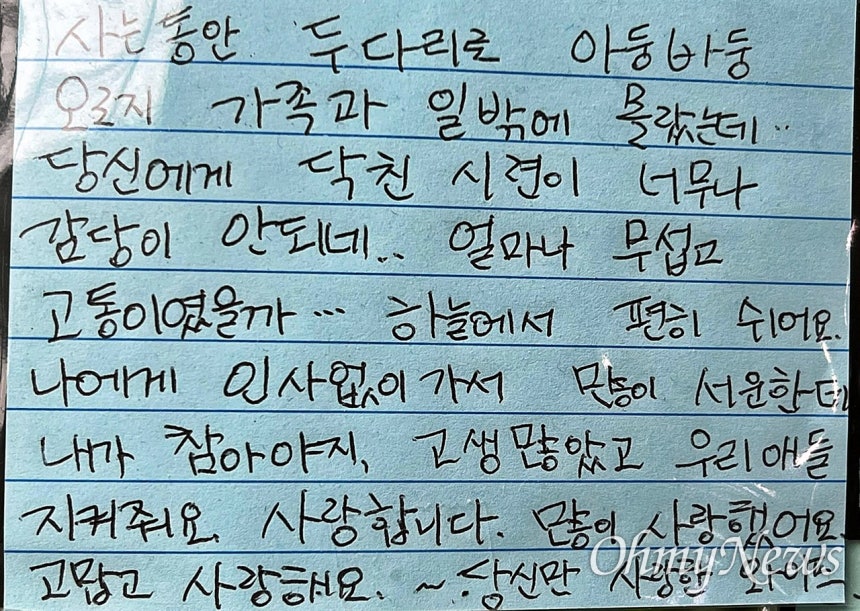 사는동안 두다리로 아둥바둥
오로지 가족과 일밖에 몰랐는데..
당신에게 닥친 시련이 너무나
감당이 안되네.. 얼마나 무섭고
고통이였을까... 하늘에서 편히 쉬어요.
나에게 인사없이가서 많이 서운한데
내가 참아야지, 고생많았고 우리애들
지켜줘요. 사랑합니다. 많이 사랑했어요
고맙고 사랑해요. ~ 당신만 사랑한 와이프
OhmyNews